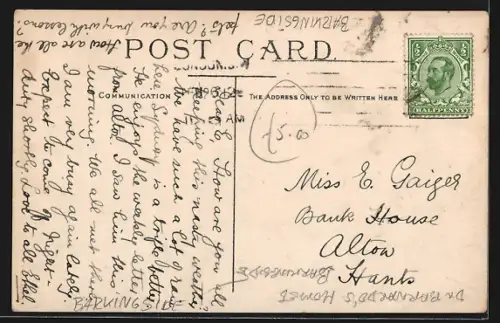 BARKINGSIDE
POST CARD.
COMMUNICATION
THE ADDRESS ONLY TO BE WRITTEN HERE
HALFPENNY
£5.00
Miss E. Gaiger
Bank House
Alton
Hants
Dear E, How are you all
keeping this nasty weather
We have such a lot of rain
here Sydney is a trifle better,
He enjoys the weekly letter
from Alton I saw him this
morning. We all met there
I am very busy again lately.
Expect to come of Night-
duty shortly. Love to all Ethel
How are all the
pets? Are you busy with lessons?
BARKINGSIDE
DR BARNARDO'S HOMES
BARKINGSIDE